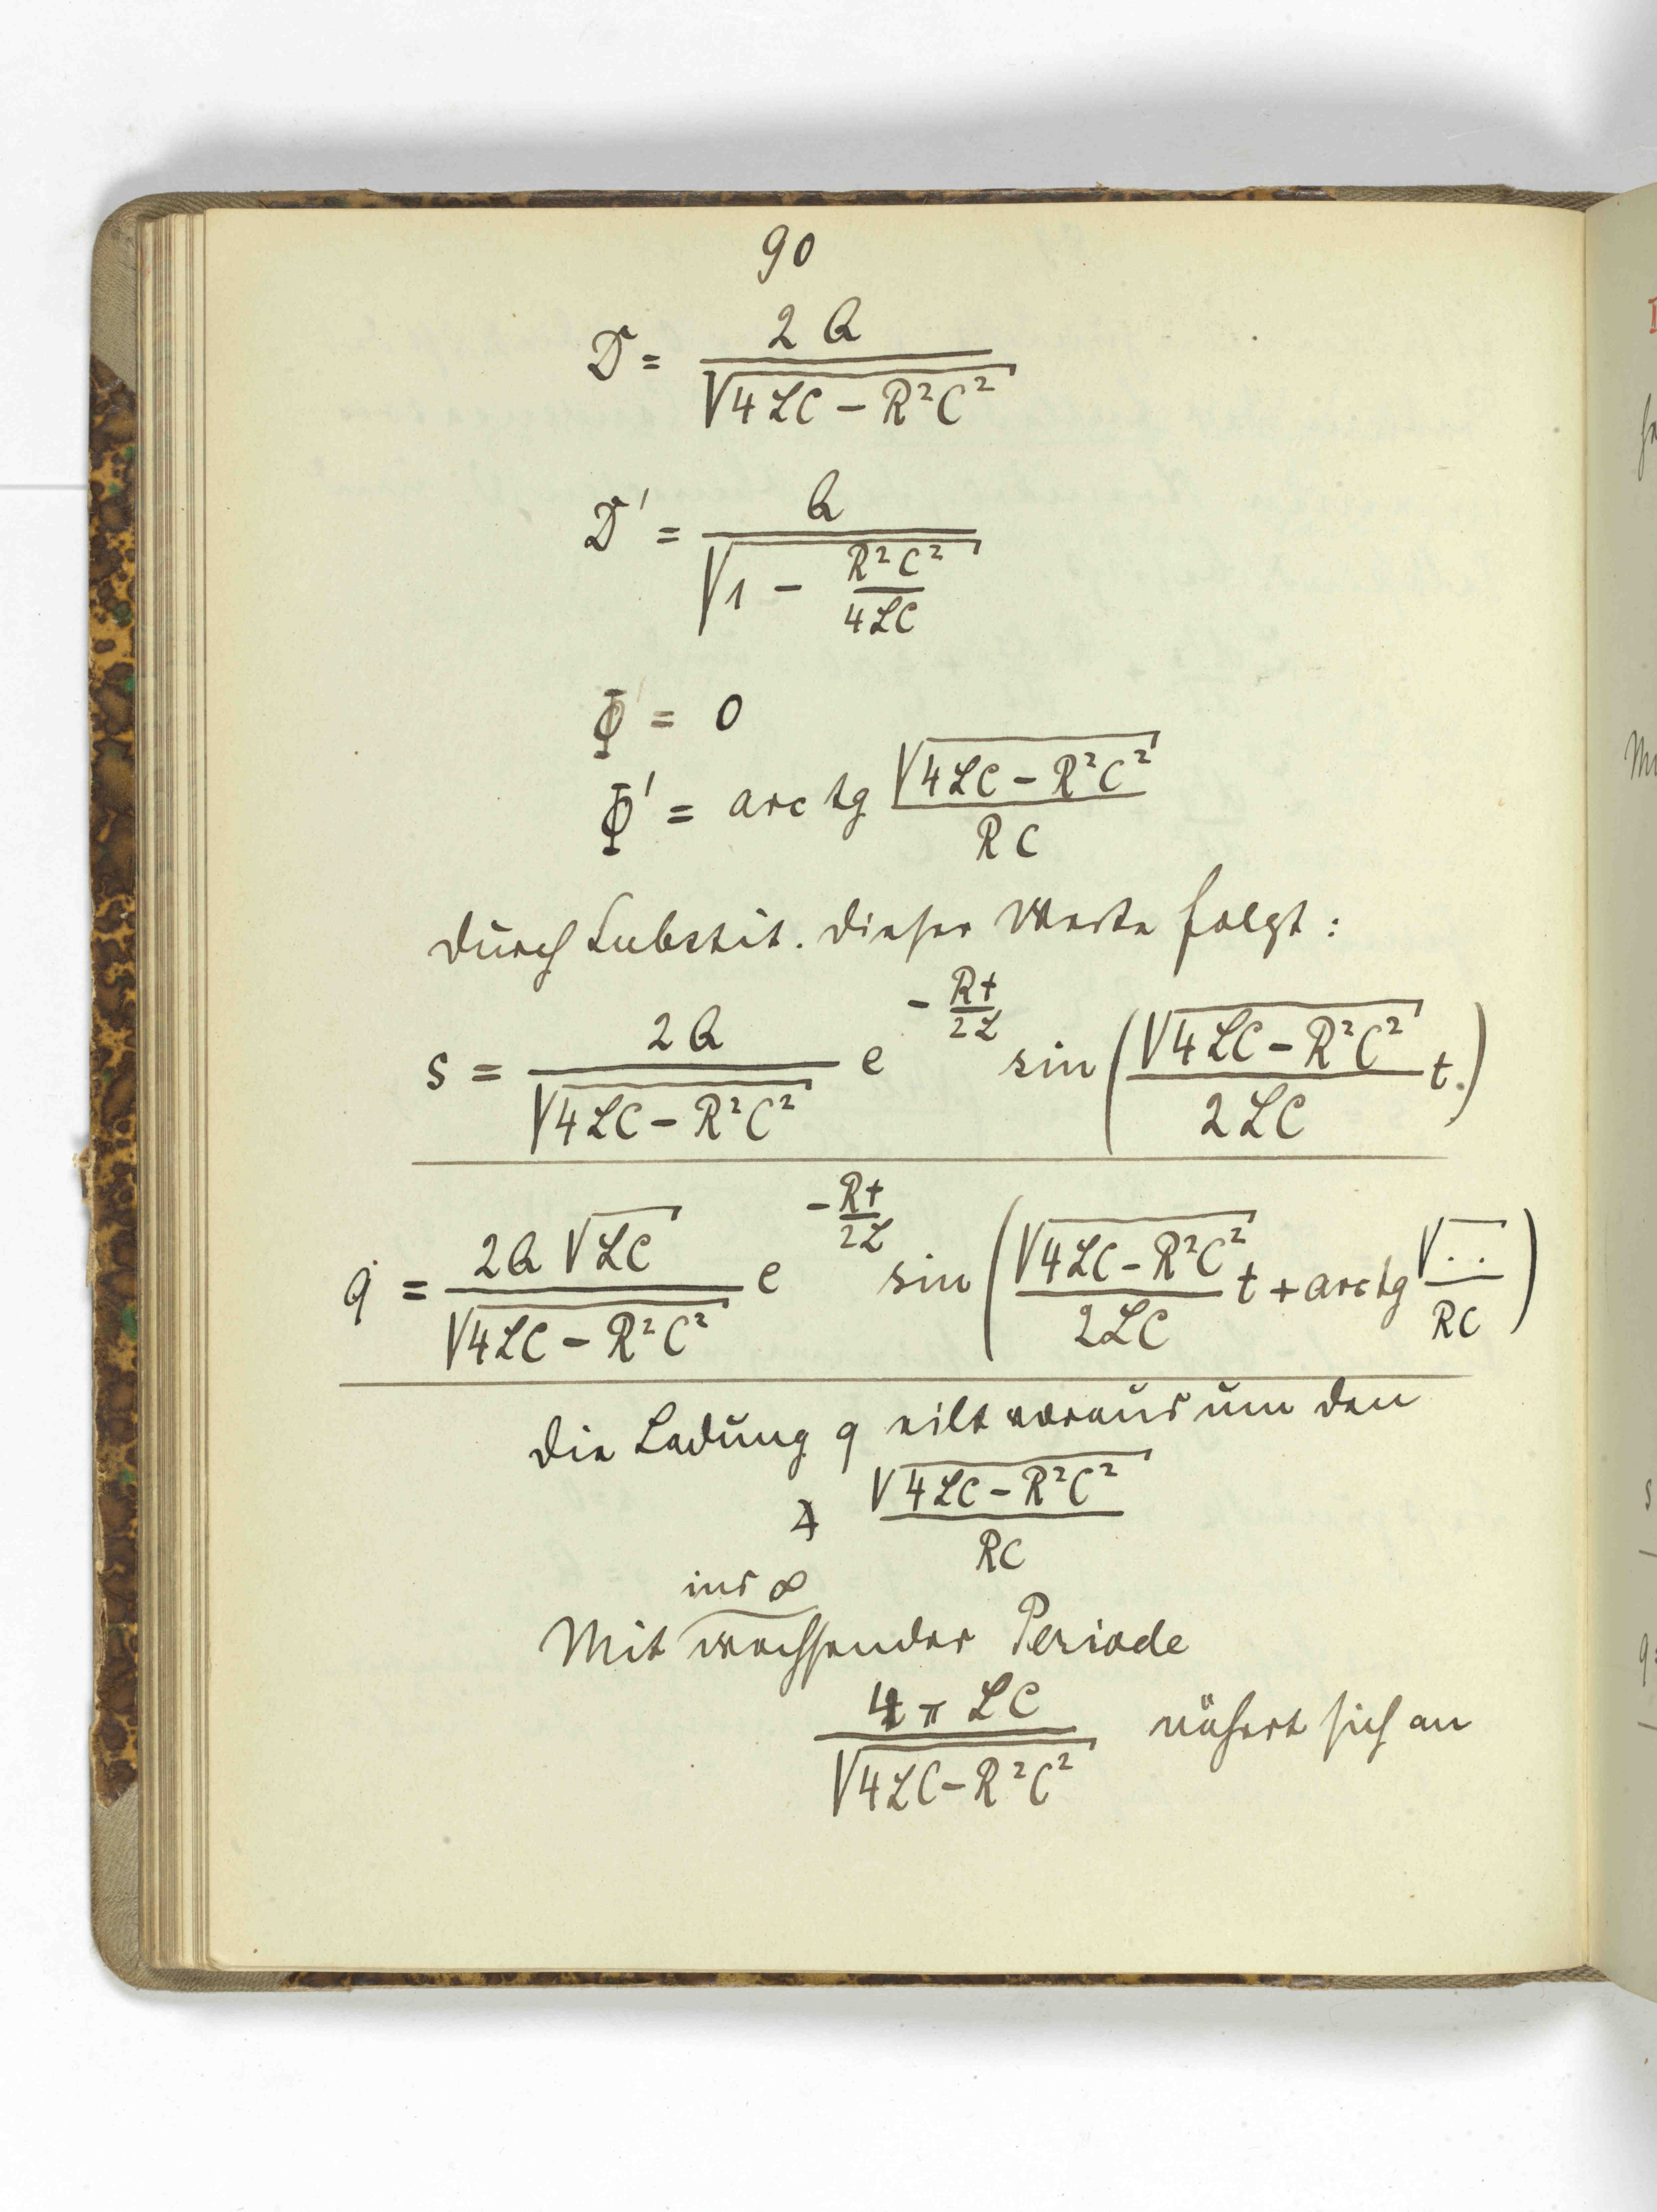 90
D = 2Q / √(4LC − R²C²)
D' = Q / √(1 − R²C² / 4LC)
Φ = 0
Φ' = arctg √(4LC − R²C²) / RC
Durch Substit. dieser Werte folgt:
s = 2Q / √(4LC − R²C²) e^(−Rt/2L) sin(√(4LC − R²C²) / 2LC t.)
q = 2Q √LC / √(4LC − R²C²) e^(−Rt/2L) sin(√(4LC − R²C²) / 2LC t + arctg √.. / RC)
Die Ladung q eilt voraus um den
∢ √(4LC − R²C²) / RC
ins ∞
Mit wachsender Periode
4π LC / √(4LC − R²C²) nähert sich an